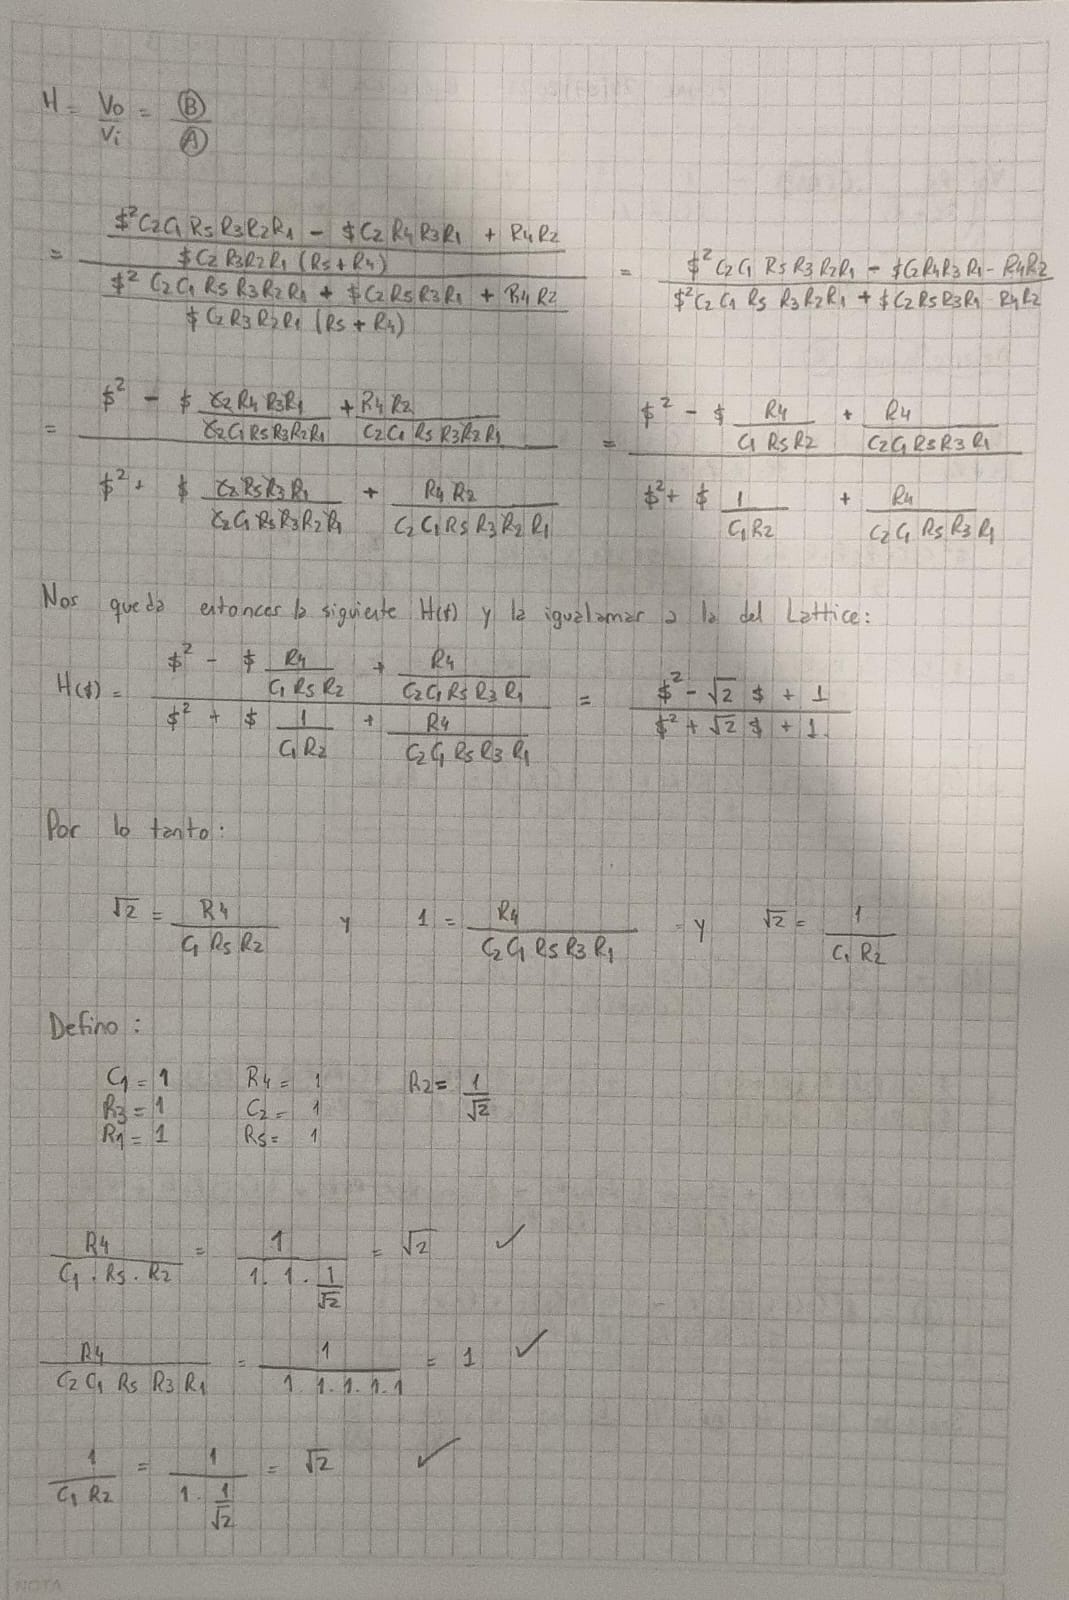 H = Vo/Vi = Ⓑ/Ⓐ
= ($² C2 C1 R5 R3 R2 R1 - $ C2 R4 R3 R1 + R4 R2 / $ C2 R3 R2 R1 (R5 + R4)) / ($² C2 C1 R5 R3 R2 R1 + $ C2 R5 R3 R1 + R4 R2 / $ C2 R3 R2 R1 (R5 + R4)) = ($² C2 C1 R5 R3 R2 R1 - $ C2 R4 R3 R1 - R4 R2) / ($² C2 C1 R5 R3 R2 R1 + $ C2 R5 R3 R1 - R4 R2)
= ($² - $ C2 R4 R3 R1 / C2 C1 R5 R3 R2 R1 + R4 R2 / C2 C1 R5 R3 R2 R1) / ($² + $ C2 R5 R3 R1 / C2 C1 R5 R3 R2 R1 + R4 R2 / C2 C1 R5 R3 R2 R1) = ($² - $ R4 / C1 R5 R2 + R4 / C2 C1 R5 R3 R1) / ($² + $ 1 / C1 R2 + R4 / C2 C1 R5 R3 R1)
Nos queda entonces la siguiente H($) y la igualamar a la del Lattice:
H($) = ($² - $ R4 / C1 R5 R2 + R4 / C2 C1 R5 R3 R1) / ($² + $ 1 / C1 R2 + R4 / C2 C1 R5 R3 R1) = ($² - √2 $ + 1) / ($² + √2 $ + 1.)
Por lo tanto:
√2 = R4 / C1 R5 R2 y 1 = R4 / C2 C1 R5 R3 R1 y √2 = 1 / C1 R2
Defino:
C1 = 1 R4 = 1 R2 = 1/√2
R3 = 1 C2 = 1
R1 = 1 R5 = 1
R4 / C1 . R5 . R2 = 1 / 1. 1 . 1/√2 = √2 ✓
R4 / C2 C1 R5 R3 R1 = 1 / 1 1. 1. 1. 1 = 1 ✓
1 / C1 R2 = 1 / 1. 1/√2 = √2 ✓
NOTA